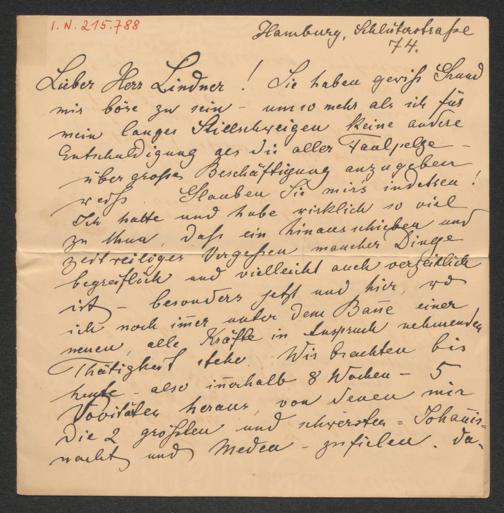 I. N. 215.788
Hamburg, Schlüterstraße
74.
Lieber Herr Lindner! Sie haben gewiß Grund
mir böse zu sein – umso mehr als ich für
mein langes Stillschweigen keine andere
Entschuldigung als die aller Faulpelze –
übergroße Beschäftigung anzugeben
weiß. Glauben Sie mirs indessen!
Ich hatte und habe wirklich so viel
zu thun, daß ein hinausschieben und
zeitweiliges Vergessen mancher Dinge
begreiflich und vielleicht auch verzeihlich
ist – besonders jetzt und hier, wo
ich noch im̅er unter dem Bane einer
neuen, alle Kräfte in Anspruch nehmenden
Thätigkeit stehe. Wir brachten bis
heute – also in̅erhalb 8 Wochen – 5
Novitäten heraus, von denen mir
die 2 größten und schwersten = Johan̅is-
nacht und Medea – zufielen. Da-